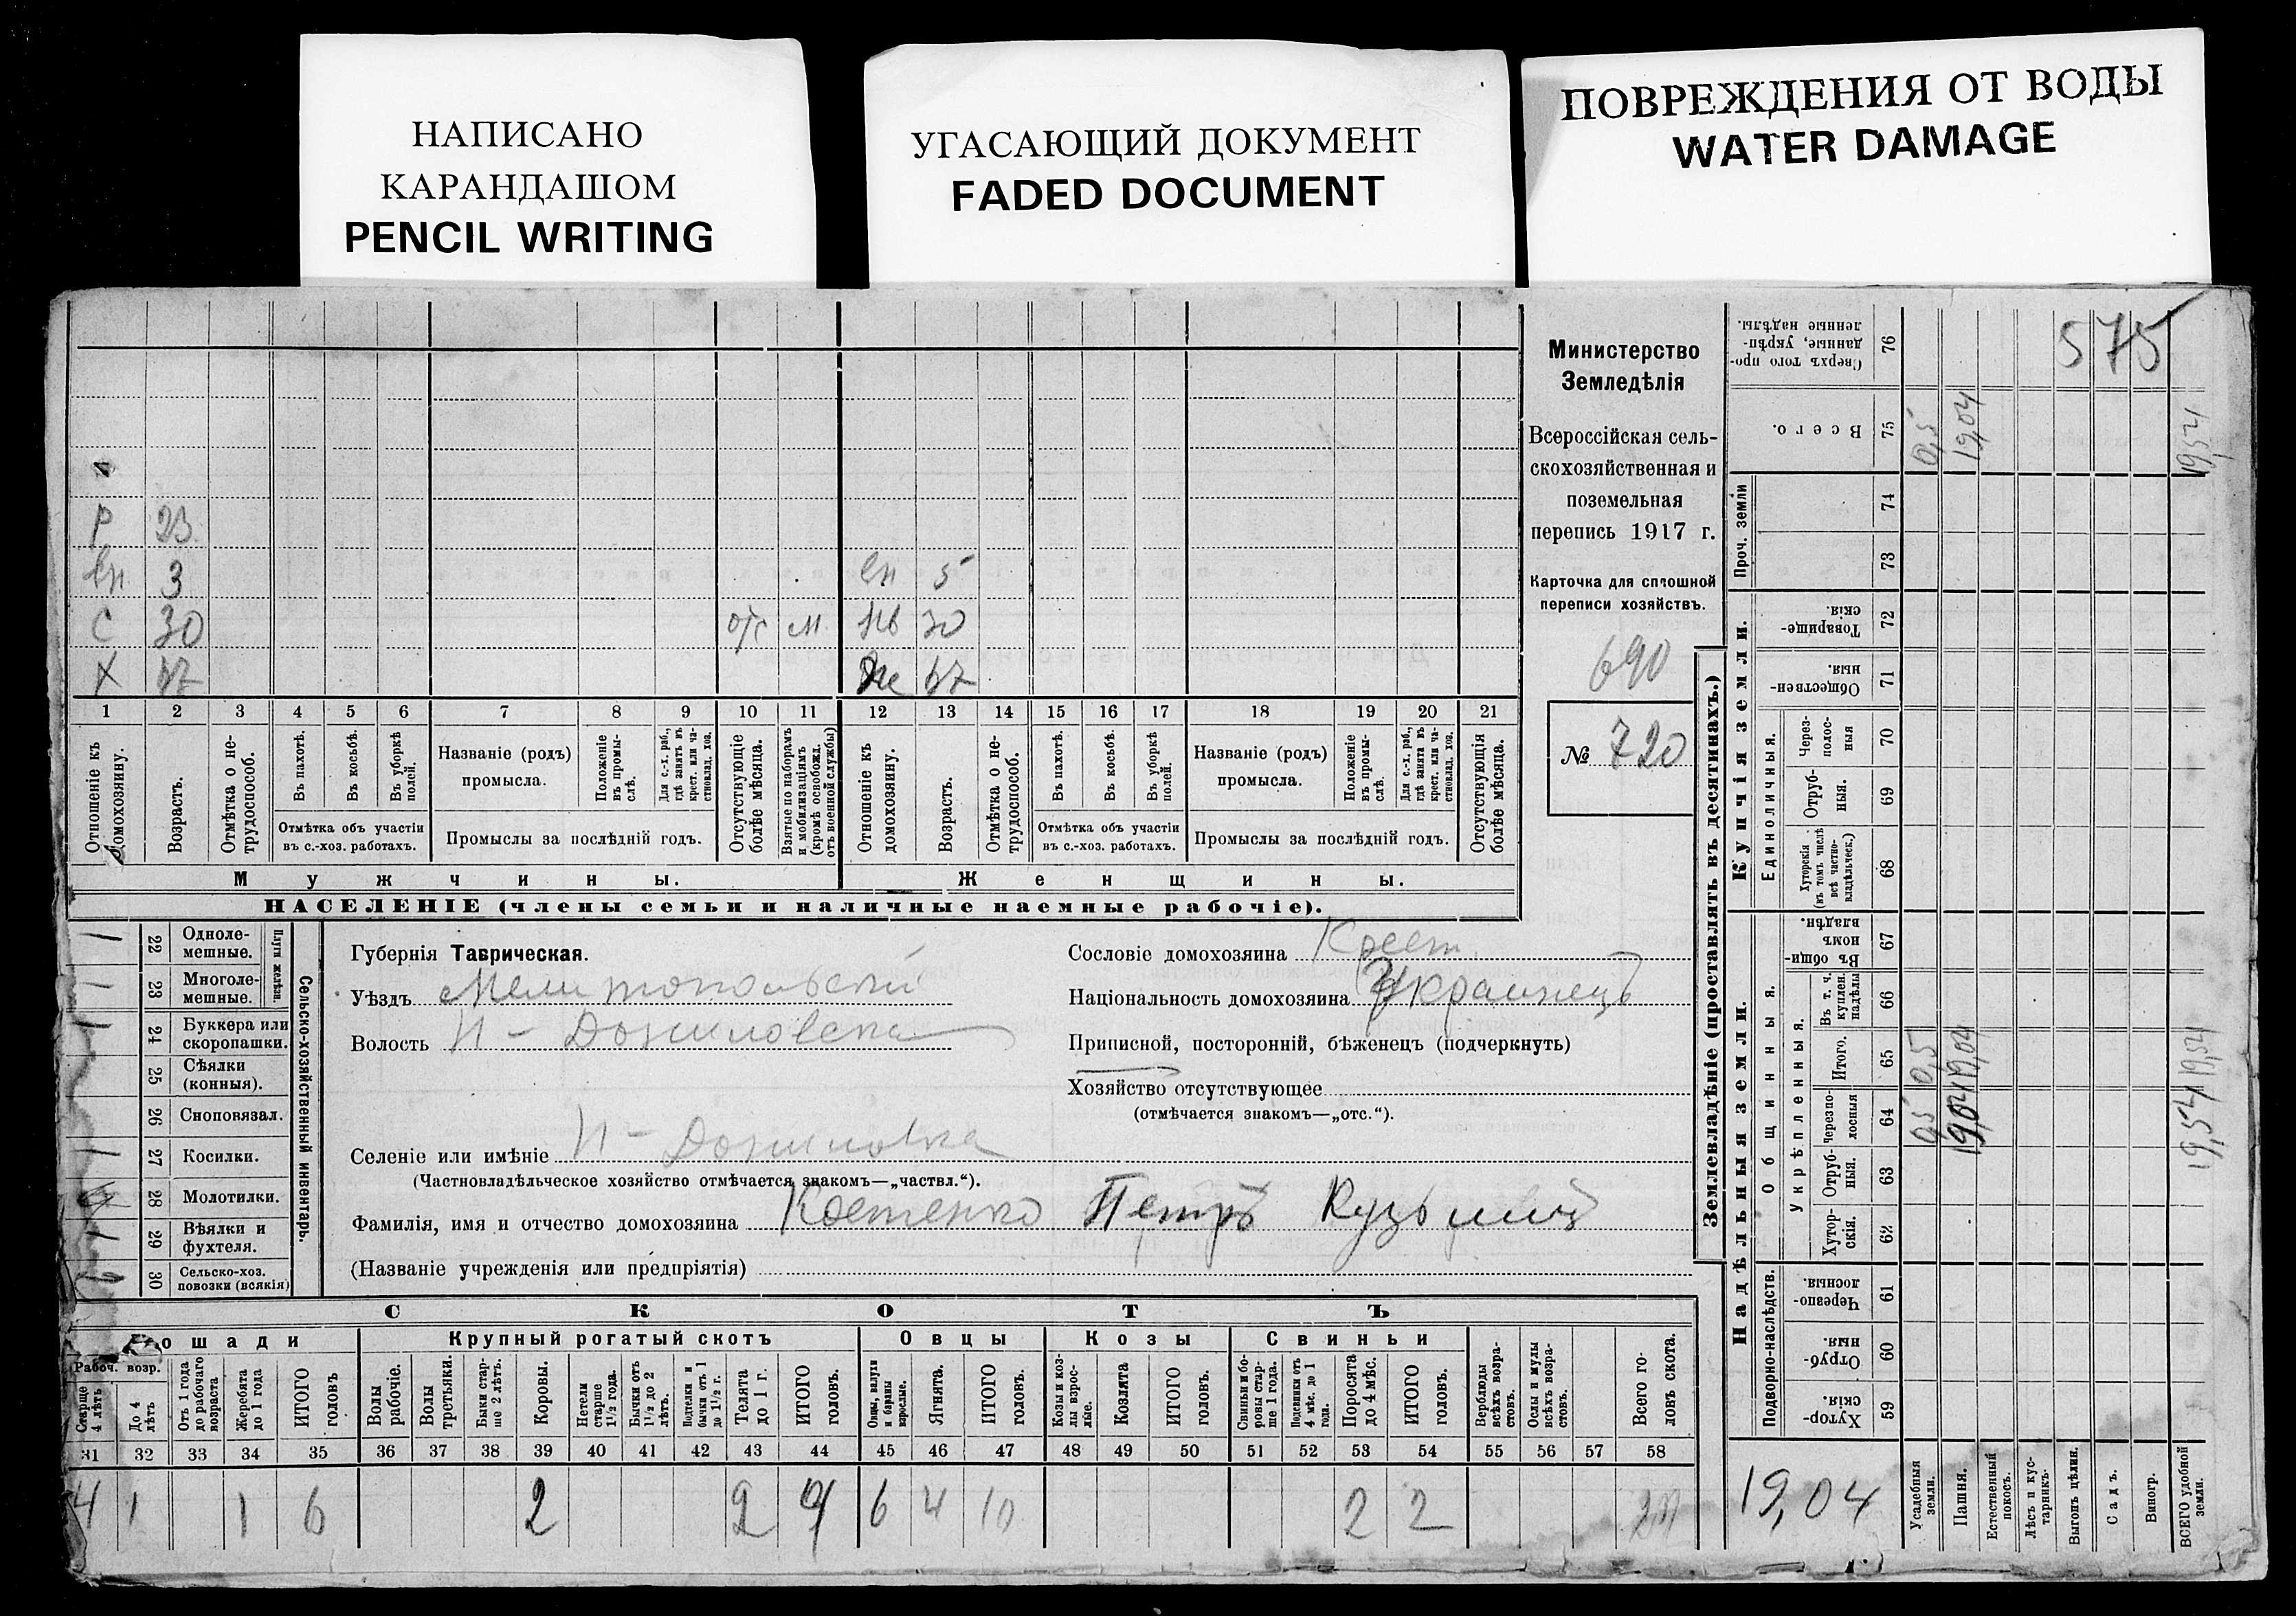 НАПИСАНО
КАРАНДАШОМ
PENCIL WRITING
УГАСАЮЩИЙ ДОКУМЕНТ
FADED DOCUMENT
ПОВРЕЖДЕНИЯ ОТ ВОДЫ
WATER DAMAGE
Р 23
Вн 3 Вн 5
С 30 отс м. Нв 30
Х 47 Же 47
1 2 3 4 5 6 7 8 9 10 11 12 13 14 15 16 17 18 19 20 21
Отношеніе къ домохозяину.
Возрастъ.
Отмѣтка о не-трудоспособ.
Въ пахотѣ.
Въ косьбѣ.
Въ уборкѣ полей.
Отмѣтка объ участіи въ с.-хоз. работахъ.
Названіе (родъ) промысла.
Положеніе въ промы-слѣ.
Для с.-х. раб., гдѣ занятъ въ крест. или ча-стновлад. хоз.
Промыслы за послѣдній годъ.
Отсутствующіе болѣе мѣсяца.
Взятые по наборамъ и мобилизаціямъ (кромѣ освобожд. отъ военной службы)
Отношеніе къ домохозяину.
Возрастъ.
Отмѣтка о не-трудоспособ.
Въ пахотѣ.
Въ косьбѣ.
Въ уборкѣ полей.
Отмѣтка объ участіи въ с.-хоз. работахъ.
Названіе (родъ) промысла.
Положеніе въ промы-слѣ.
Для с.-х. раб., гдѣ занята въ крест. или ча-стновлад. хоз.
Промыслы за послѣдній годъ.
Отсутствующія болѣе мѣсяца.
Мужчины. Женщины.
НАСЕЛЕНІЕ (члены семьи и наличные наемные рабочіе).
Министерство
Земледѣлія
Всероссійская сель-
скохозяйственная и
поземельная
перепись 1917 г.
Карточка для сплошной
переписи хозяйствъ.
690
№ 720
Сельско-хозяйственный инвентарь.
Плуги желѣзн.
1 22 Одноле-мешные.
1 23 Многоле-мешные.
1 24 Буккера или скоропашки.
25 Сѣялки (конныя).
26 Сноповязал.
1 27 Косилки.
28 Молотилки.
1 29 Вѣялки и фухтеля.
30 Сельско-хоз. повозки (всякія)
Губернія Таврическая.
Уѣздъ Мелитопольскій
Волость
Селеніе или имѣніе
(Частновладѣльческое хозяйство отмѣчается знакомъ—„частвл.“).
Фамилія, имя и отчество домохозяина Костенко Петръ Кузьмичъ
(Названіе учрежденія или предпріятія)
Сословіе домохозяина Крест.
Національность домохозяина Украинецъ
Приписной, посторонній, бѣженецъ (подчеркнуть)
Хозяйство отсутствующее
(отмѣчается знакомъ—„отс.“).
СКОТЪ
Лошади Крупный рогатый скотъ Овцы Козы Свиньи
Рабоч. возр.
Старше 4 лѣтъ
До 4 лѣтъ
Отъ 1 года до рабочаго возраста
Жеребята до 1 года
ИТОГО головъ
Волы рабочіе.
Волы третьяки.
Быки стар-ше 2 лѣтъ.
Коровы.
Нетели старше 1½ года.
Бычки отъ 1½ до 2 лѣтъ.
Подтелки и бычки отъ 1 до 1½ г.
Телята до 1 г.
ИТОГО головъ.
Овцы, валухи и бараны взрослые.
Ягнята.
ИТОГО головъ.
Козы и коз-лы взрос-лые.
Козлята
ИТОГО головъ.
Свиньи и бо-ровы стар-ше 1 года.
Подсвинки отъ 4 мѣс. до 1 года.
Поросята до 4 мѣс.
ИТОГО головъ.
Верблюды всѣхъ возра-стовъ.
Ослы и мулы всѣхъ возра-стовъ.
Всего го-ловъ скота.
31 32 33 34 35 36 37 38 39 40 41 42 43 44 45 46 47 48 49 50 51 52 53 54 55 56 57 58
4 1 1 6 2 2 4 6 4 10 2 2
Землевладѣніе (проставлять въ десятинахъ.)
Купчія земли.
Надѣльныя земли.
575
Сверхъ того про-данные, укрѣп-ленные надѣлы. 76
Всего. 75 0,5 19,04 19,54
Проч. земли 74 73
Товарище-скія. 72
Обществен-ныя. 71
Единоличныя.
Через-полос-ныя 70
Отруб-ныя. 69
Хуторскія (въ томъ числѣ всѣ частно-владѣльческ.) 68
Общинныя.
Въ общин-номъ владѣн. 67
Укрѣпленныя.
Въ т. ч. куплен. надѣлы 66
Итого. 65 0,5 19,04 19,54
Черезпо-лосныя 64 0,5 19,04 19,54
Отруб-ныя. 63
Хутор-скія. 62
Подворно-наслѣдств.
Черезпо-лосныя 61
Отруб-ныя. 60
Хутор-скія. 59
19,04
Усадебныя земли.
Пашня.
Естественный покосъ.
Лѣсъ и кус-тарникъ.
Выгонъ цѣлин.
Садъ.
Виногр.
ВСЕГО удобной земли.